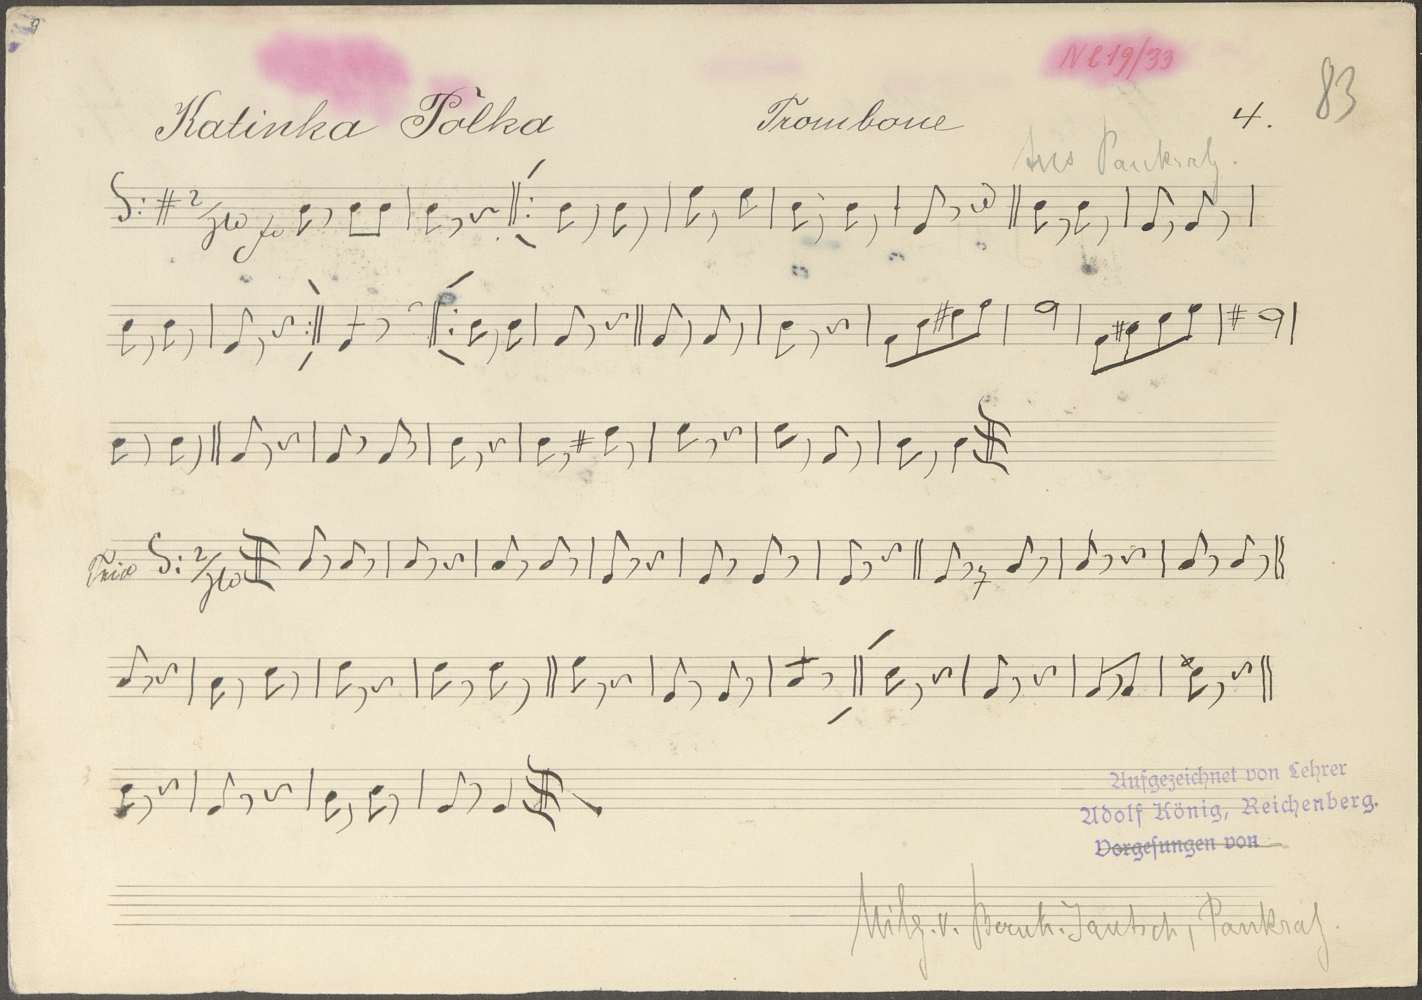 Nl 19/33
83
Katinka Polka Trombone 4.
Aus Pankraz.
2/4
Trio 2/4
Aufgezeichnet von Lehrer
Adolf König, Reichenberg.
Vorgesungen von
Mitg. v. Bernh. Jantsch, Pankraz.